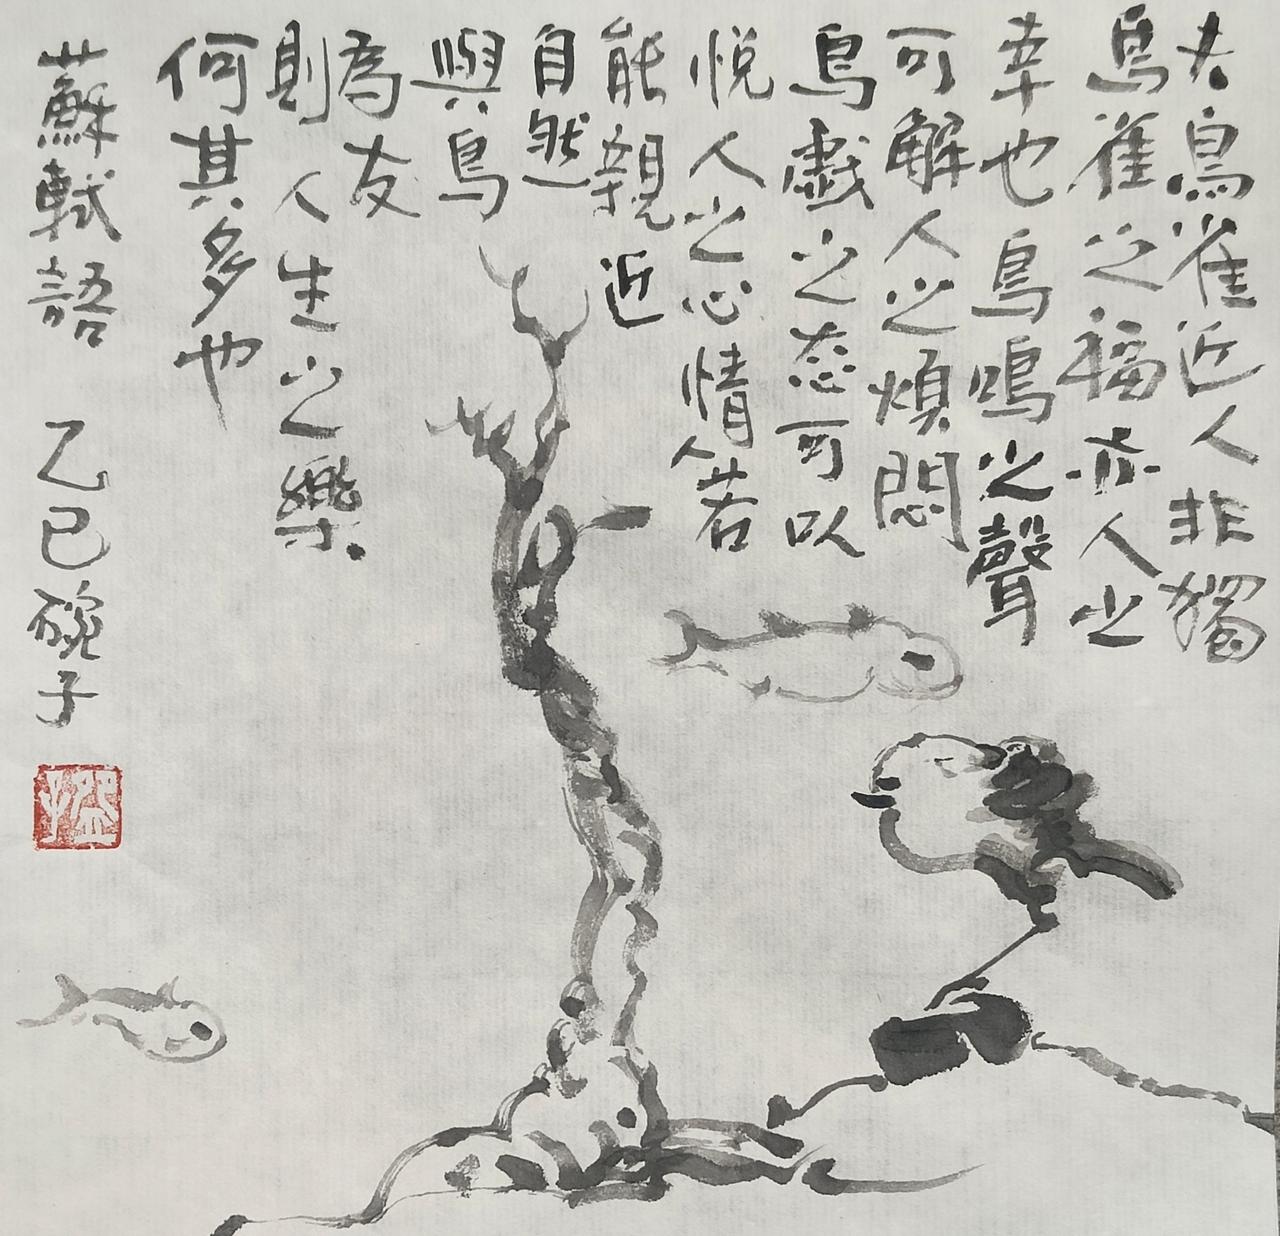 夫鳥雀近人非獨
鳥雀之福亦人之
幸也鳥鳴之聲
可解人之煩悶
鳥戲之态可以
悦人之心情人若
能親近
自然
與鳥
為友
則人生之樂
何其多也
蘇軾語 乙巳碗子